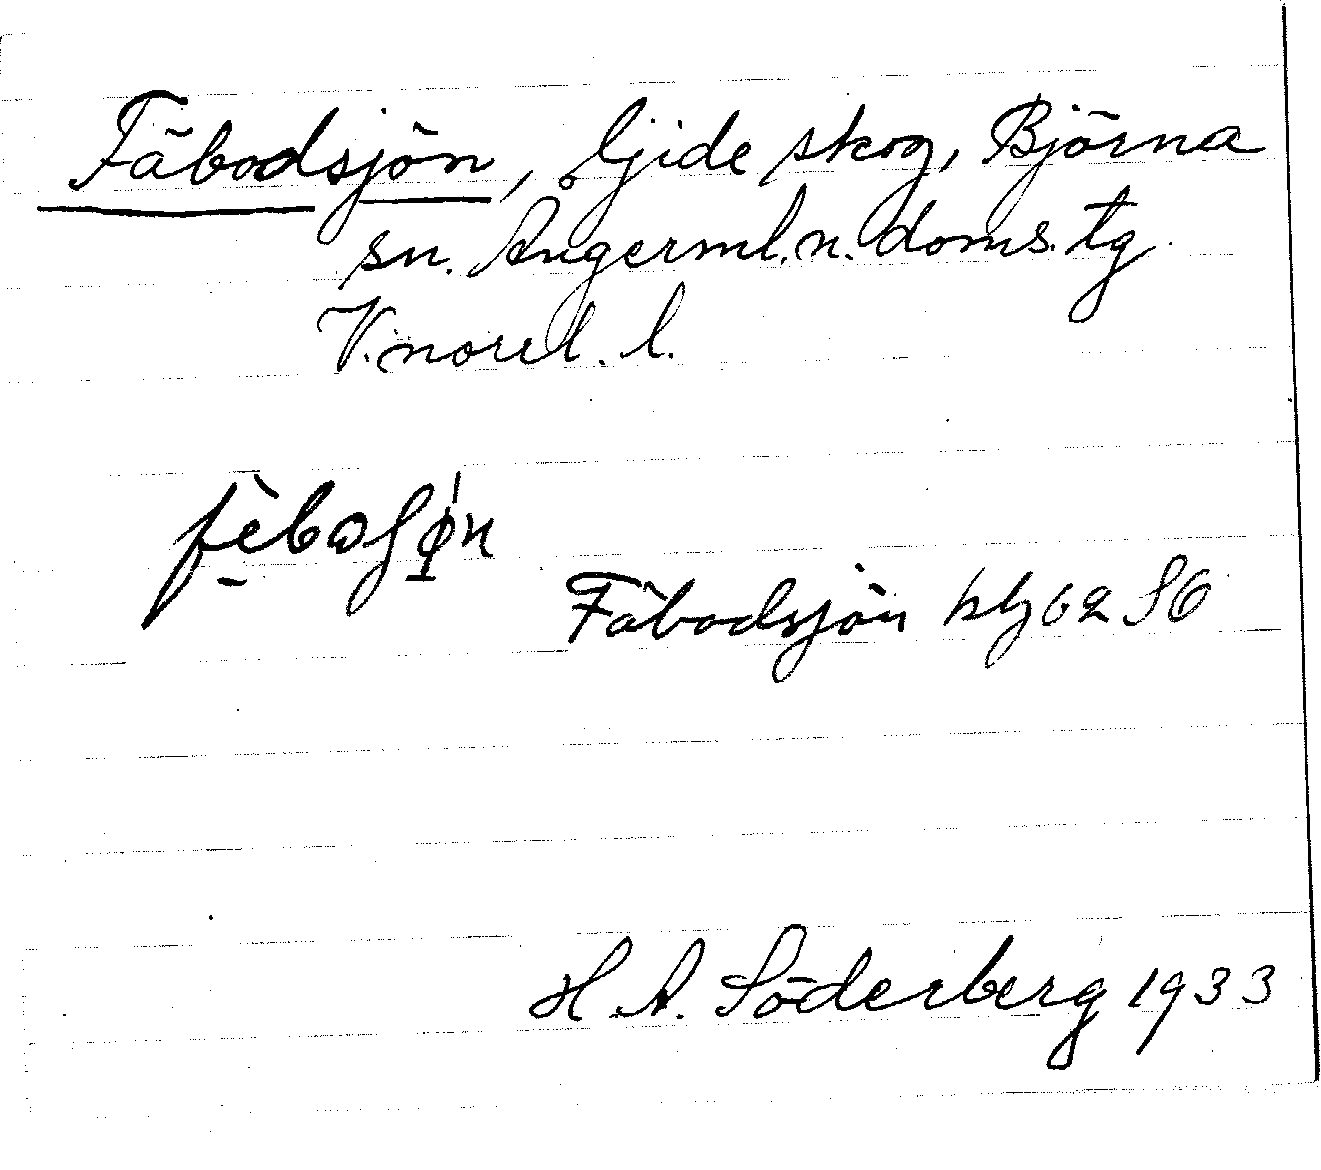 Fäbodsjön, Gide skog, Björna
sn. Ångerml. n. doms. tg
V. norrl. l.
Fäbodsjön kbl 62 SO
H. A. Söderberg 1933